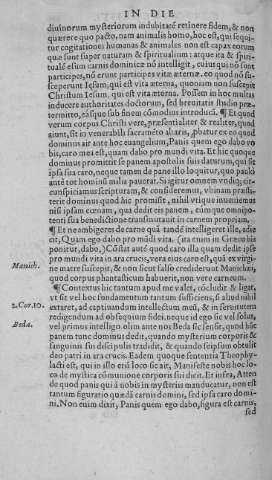 IN DIE
diuinorum mysteriorum indubitatā retinere fidem, & non
quærere quo pacto, nam animalis homo, hoc est, qui sequi-
tur cogitationes humanas & animales non est capax eorum
quæ sunt super naturam & spiritualium: atque ita & spiri-
tualē esum carnis dominicæ nō intelligit, cuius qui nō sunt
participes, nō erunt participes vitæ æternæ. eo quod nō su-
sceperunt Iesum, qui est vita æterna, quoniam non suscepit
Christum Iesum. qui est vita æterna. Possem in hoc multas
inducere authoritates doctorum, sed breuitatis studio præ-
termitto, eāsque sub finem cōmodius introducā. ¶ Et quod
verum corpus Christi vere, præsentialiter & realiter, quod
aiunt, sit in venerabili sacramēto altaris, ꝓbatur ex eo quod
dominus ait ante hoc euangelium, Panis quem ego dabo vo
bis, caro mea est, quam dabo pro mundi vita. Et hic quoque
dominus promittit se panem apostolis suis daturum, qui sit
ipsa sua caro, neque tamen de pane illo loquitur, quo pauló
antè tot hominū milia pauerat. Si igitur omnem vndiq; cir-
cunspiciamus scripturam, & consideremus, vbinam præsti-
terit dominus quod hic promisit, nihil vtique inueniemus
nisi ipsam cœnam, qua dedit eis panem, eumque omnipo-
tenti sua benedictione transmutauit in carnem propriam.
¶ Et ne ambigeres de carne quā tandē intelligeret ille, adie
cit, Quam ego dabo pro mūdi vita. (ita enim in Græco his
ponitur, dabo,) Cōstat autē quod caro illa quam dedit ipse
pro mundi vita in ara crucis, vera eius caro est, quā ex virgi-
ne matre suscepit, & non sicut falso crediderunt Manichæi,
quod corpus phantasticum habuerit, non vere carneum.
¶ Contextus hic tantum apud me valet, cōcludit & ligat,
vt si vel hoc fundamentum tantum sufficiens, si aliud nihil
extaret, ad captiuandum intellectum meū, & in seruitutem
redigendum ad obsequium fidei. neque id ego sic vel solus,
vel primus intelligo olim ante nos Beda sic sensit, quod hūc
panem tunc dominus dedit, quando mysterium corporis &
sanguinis sui discipulis tradidit, & quando seipsum obtulit
deo patri in ara crucis. Eadem quoque sententia Theophy-
lacti est, qui in illo eiꝰ loco sic ait, Manifeste nobis hoc lo-
co de mystica cōmunione corporis sui dicit. Et infra, Atten
de quod panis qui à nobis in mysteriis manducatur, non est
tantum figuratio quædā carnis domini, sed ipsa caro domi-
ni. Non enim dixit, Panis quem ego dabo, figura est carnis,
sed
Manich.
2.Cor.10.
Beda.